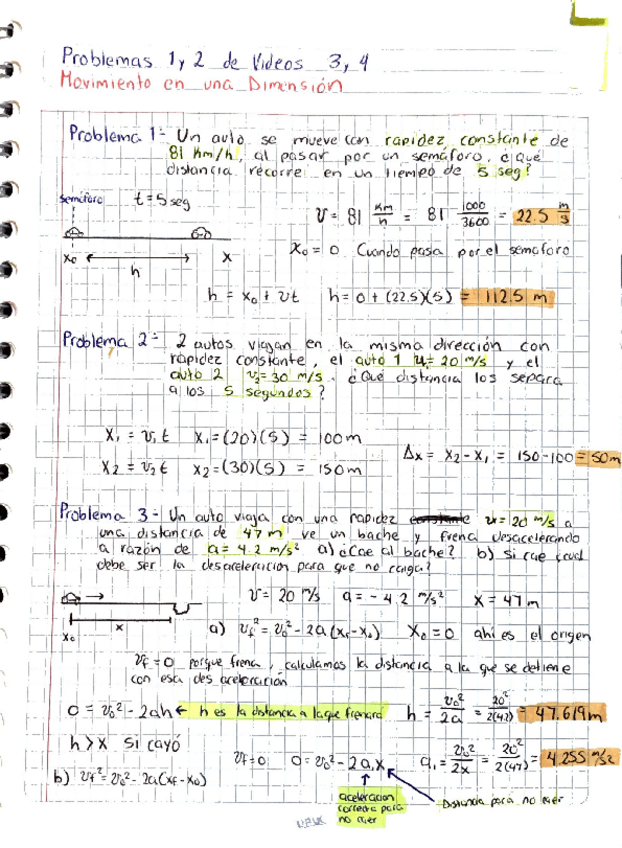 Problemas 1 y 2 de Videos 3, 4
Movimiento en una Dimensión
Problema 1- Un auto se mueve con rapidez constante de
81 Km/h, al pasar por un semáforo, ¿que
distancia recorre en un tiempo de 5 seg?
semáforo t = 5 seg
v = 81 Km/h = 81 1000/3600 = 22.5 m/s
x₀ = 0 Cuando pasa por el semaforo
x₀ h x
h = x₀ + vt h = 0 + (22.5)(5) = 112.5 m
Problema 2- 2 autos viajan en la misma dirección con
rapidez constante, el auto 1 v₁= 20 m/s y el
auto 2 v₂= 30 m/s. ¿Qué distancia los separa
a los 5 segundos?
X₁ = v₁t X₁ = (20)(5) = 100m
X₂ = v₂t x₂ = (30)(5) = 150m
Δx = X₂ - X₁ = 150-100 = 50m
Problema 3- Un auto viaja con una rapidez constante v₁= 20 m/s a
una distancia de 47 m ve un bache y frena desacelerando
a razón de a = 4.2 m/s² a) ¿Cae al bache? b) si cae ¿cual
debe ser la desaceleración para que no caiga?
v = 20 m/s a = - 4.2 m/s² x = 47m
x₀ x
a) vf² = v₀² - 2a (xf - x₀) X₀ = 0 ahi es el origen
vf = 0 porque frena, calculamos la distancia a la que se detiene
con esta desaceleración
0 = v₀² - 2ah ← h es la distancia a la que frenará h = v₀²/2a = 20²/2(4.2) = 47.619m
h > X si cayó
vf=0 0 = v₀² - 2a₁x a₁ = v₀²/2x = 20²/2(47) = 4.255 m/s²
b) vf² = v₀² - 2a (xf - x₀)
aceleracion
correcta para
no caer
Distancia para no caer